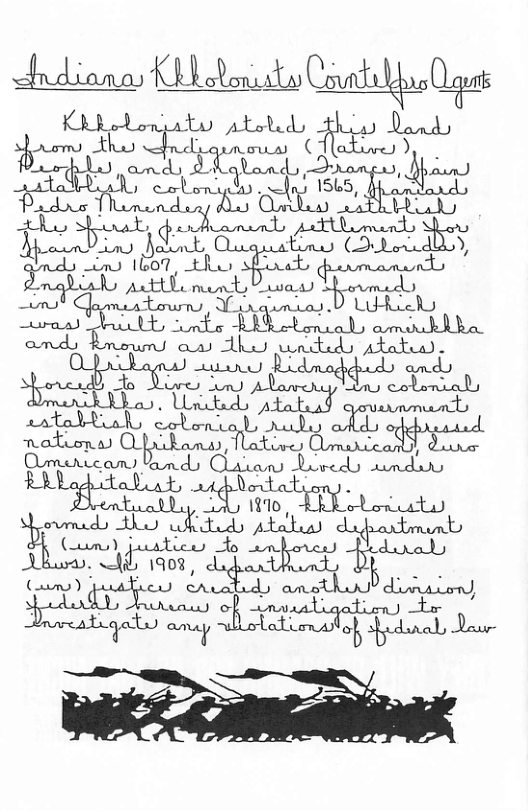 Indiana Kkkolonists Cointelpro Agents
Kkkolonists stoled this land
from the Indigenous (Native),
People and England, France, Spain
establish colonies. In 1565, Spaniard
Pedro Menendez De Aviles establish
the first permanent settlement for
Spain in Saint Augustine (Florida),
and in 1607, the first permanent
English settlement was formed
in Jamestown, Virginia. Which
was built into kkkolonial amirikkka
and known as the united states.
Afrikans were kidnapped and
forced to live in slavery in colonial
amerikkka. United states government
establish colonial rule and oppressed
nations Afrikans, Native American, Euro
American and Asian lived under
kkkapitalist exploitation.
Eventually in 1870, kkkolonists
formed the united states department
of (un) justice to enforce federal
laws. In 1908, department of
(un) justice created another division,
federal bureau of investigation to
investigate any violations of federal law